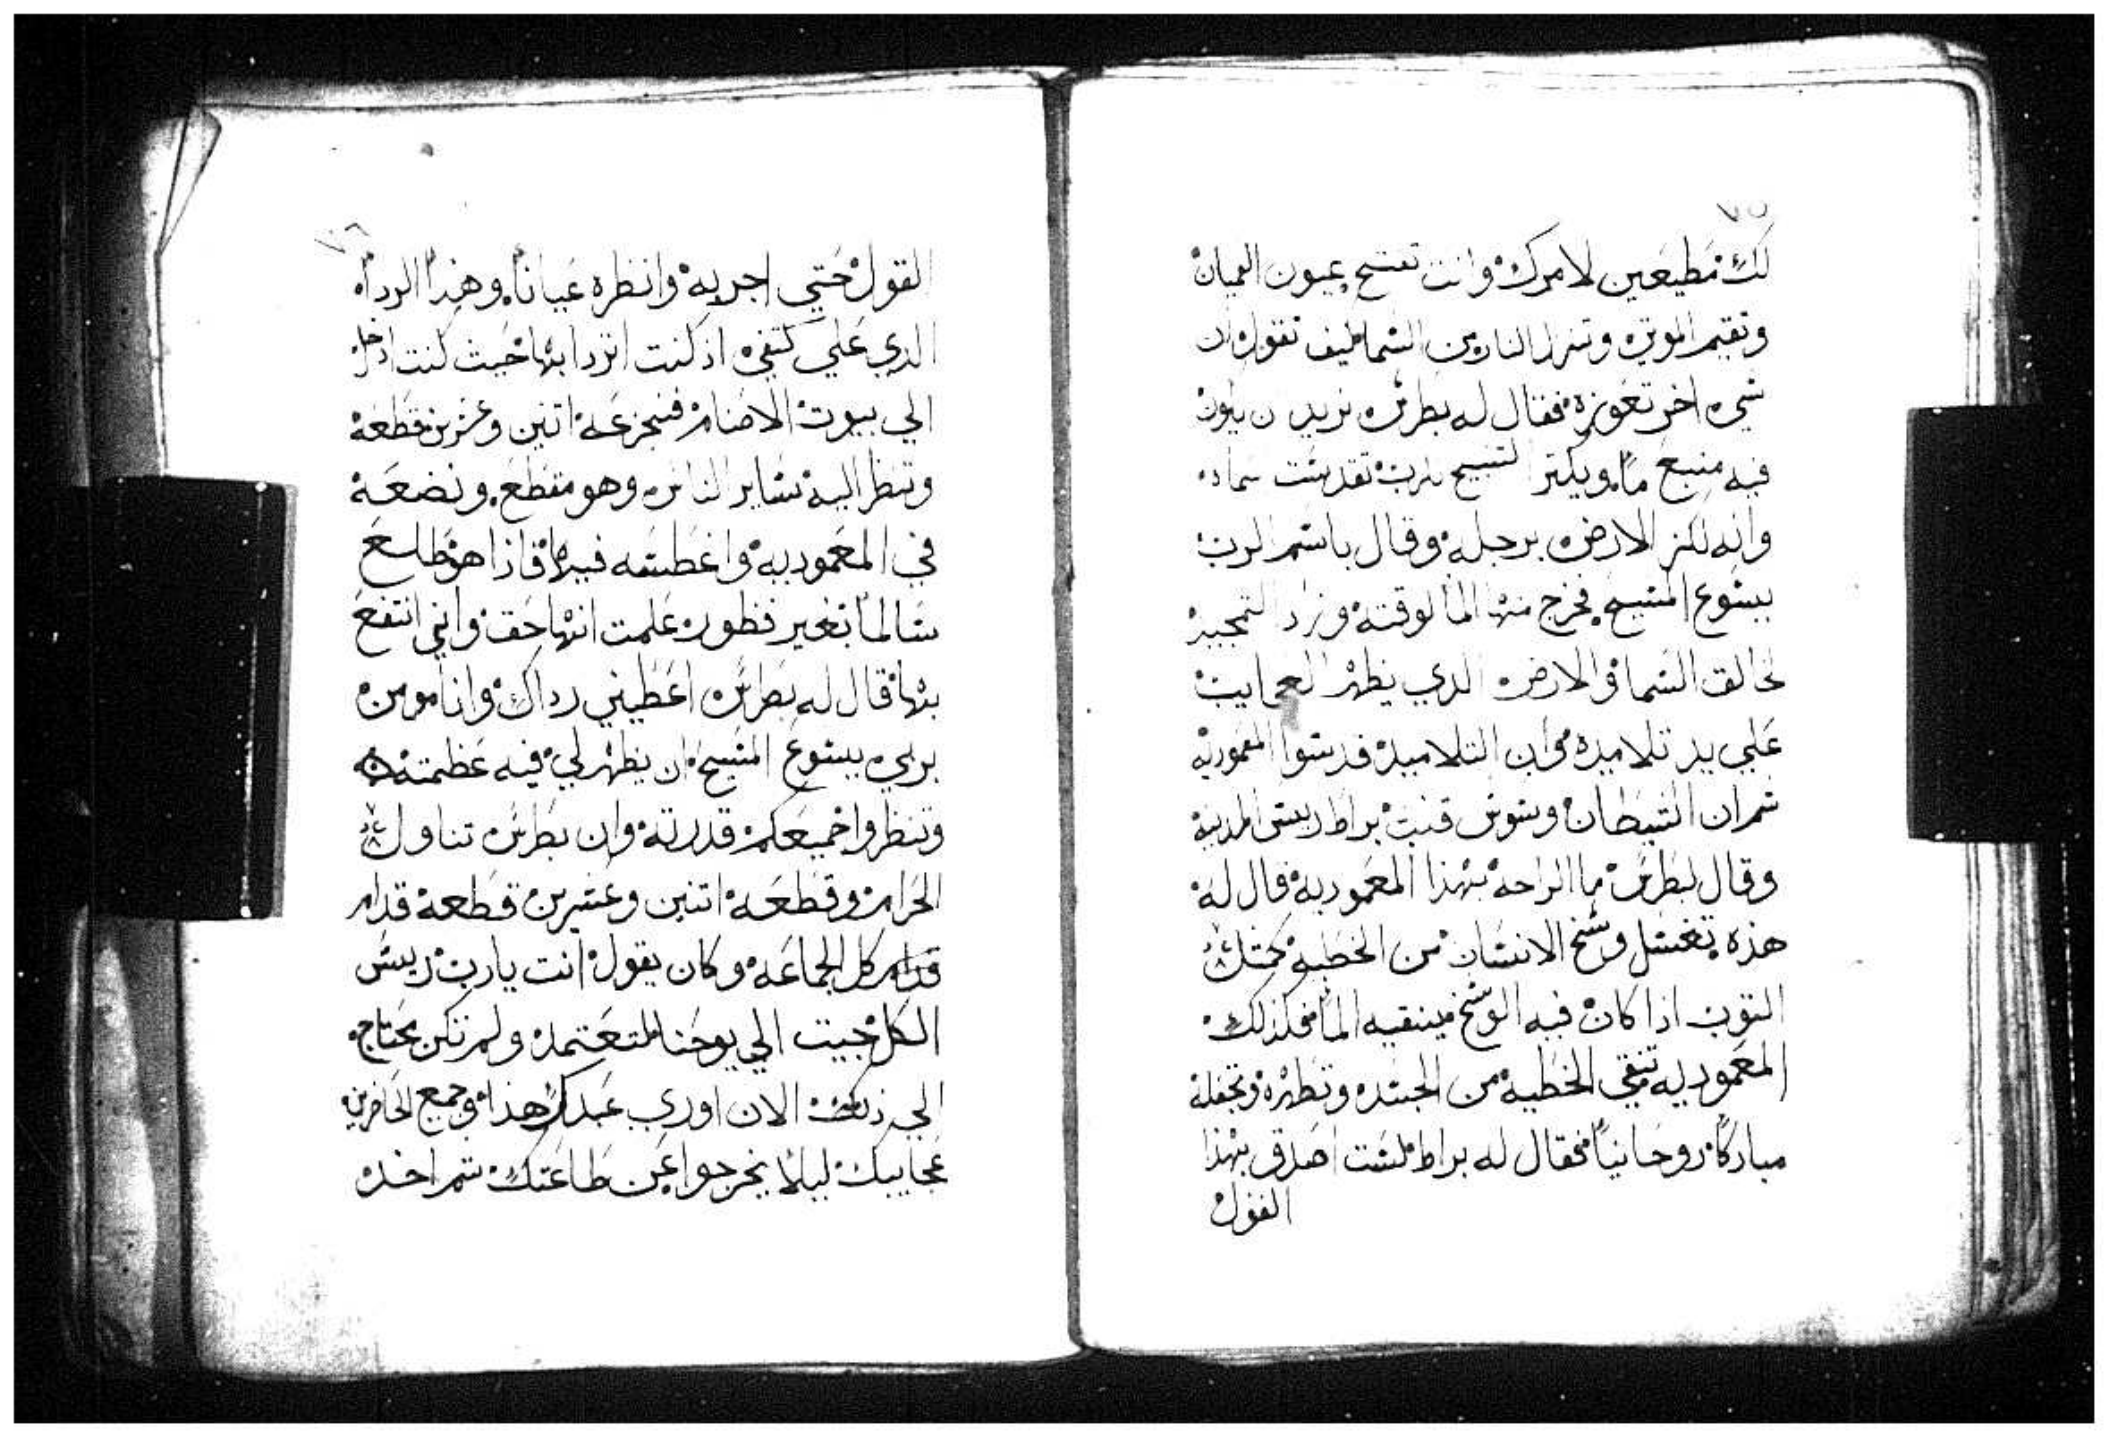 ٧٥
لك مطيعين لامرك وانت تفتح عيون العميان
وتقيم الموتي وتنزل النار من السما كيف تقول ان
شي اخر تعوزه فقال له بطرس نريد ان يكون
فيه منبع ما ويكتر التسبيح للرب تقدست سماه
وانه لكز الارض برجله وقال باسم الرب
يسوع المسيح فخرج منها الما لوقته وزاد التمجيد
لخالق السما والارض الدي يظهر العجايب
علي يد تلاميده وان التلاميد قدسوا المعموديه
تم ان الشيطان وسوس قلب براط ريس المدينه
وقال لبطرس ما الراحه بهدا المعموديه قال له
هذه تغسل وسخ الانسان من الخطيه كمتل
التوب اذا كان فيه الوسخ فينقيه الما فكذلك
المعموديه تنقي الخطيه من الجسد وتطهره وتجعله
مباركاً روحانياً فقال له براط لست اصدق بهذا
القول
٧٦
القول حتي اجربه وانظره عياناً وهذا الرداه
الدي علي كتفي اذ كنت اتردا بها حيث كنت ادخل
الي بيوت الاصنام فنجزعه اتنين وعشرين قطعه
وتنظر اليه ساير الناس وهو مقطع ونضعه
في المعموديه واغطسه فيها فاذا هو طلع
سالماً بغير فطور علمت انها حق واني انتفع
بها قال له بطرس اعطيني رداك وانا مومن
بربي يسوع المسيح ان يظهر لي فيه عظمته
وتنظروا جميعكم قدرته وان بطرس تناول
الحرام وقطعه اتنين وعشرين قطعه قدام
قدام كل الجماعه وكان يقول انت يارب ريس
الكل جيت الي يوحنا لتعتمد ولم تكن تحتاج
الي ذلك الان اوري عبدك هذا وجميع الحاضرين
عجايبك ليلا يخرجوا عن طاعتك تم اخد